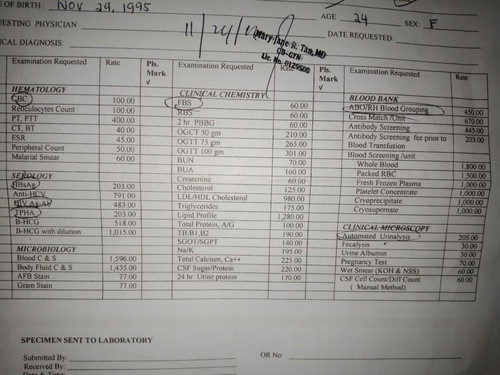 OF BIRTH NOV 29, 1995
AGE 24 SEX: F
ESTING PHYSICIAN:
DATE REQUESTED:
ICAL DIAGNOSIS:
11/24/
Mary Jane R. Tan, MD
OB-GYN
Lic. No. 0129500
Examination Requested Rate Pls. Mark √ Examination Requested Rate Pls. Mark √ Examination Requested Rate
HEMATOLOGY
CBC 100.00
Reticulocytes Count 100.00
PT, PTT 400.00
CT, BT 40.00
ESR 45.00
Peripheral Count 50.00
Malarial Smear 60.00
SEROLOGY
HBsAg 203.00
Anti-HCV 791.00
HIV Ag-Ab 483.00
TPHA 203.00
B-HCG 518.00
B-HCG with dilution 1,015.00
MICROBIOLOGY
Blood C & S 1,596.00
Body Fluid C & S 1,435.00
AFB Stain 77.00
Gram Stain 77.00
CLINICAL CHEMISTRY
FBS 60.00
RBS 60.00
2 hr. PBBG 60.00
OGCT 50 gm 210.00
OGTT 75 gm 265.00
OGTT 100 gm 301.00
BUN 70.00
BUA 160.00
Createnine 60.00
Cholesterol 125.00
LDL/HDL Cholesterol 980.00
Triglycerides 175.00
Lipid Profile 1,280.00
Total Protein, A/G 100.00
TB,B1,B2 190.00
SGOT/SGPT 140.00
Na/K 195.00
Total Calcium, Ca++ 225.00
CSF Sugar/Protein 220.00
24 hr. Urine protein 170.00
BLOOD BANK
ABO/RH Blood Grouping 450.00
Cross Match /Unit 670.00
Antibody Screening 445.00
Antibody Screening fee prior to 203.00
Blood Transfusion
Blood Screening /unit
Whole Blood 1,800.00
Packed RBC 1,500.00
Fresh Frozen Plasma 1,000.00
Platelet Concentrate 1,000.00
Cryoprecipitate 1,000.00
Cryosupernate 1,000.00
CLINICAL MICROSCOPY
Automated Urinalysis 205.00
Fecalysis 30.00
Urine Albumin 30.00
Pregnancy Test 70.00
Wet Smear (KOH & NSS) 60.00
CSF Cell Count/Diff Count 60.00
( Manual Method)
SPECIMEN SENT TO LABORATORY
Submitted By: OR No:
Received By:
Date & Time: